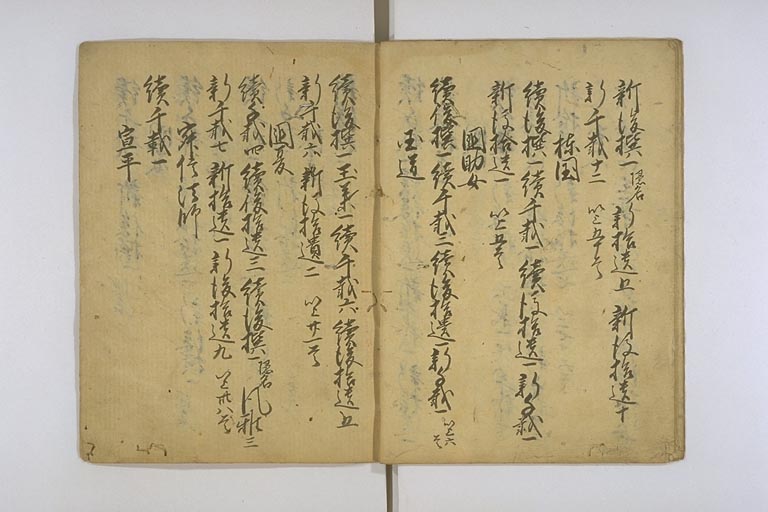 新後撰一隠名 新拾遺五 新後拾遺十
新千載十二 以上五十首
棟国
續後撰一 續千載一 續後拾遺一 新千載一
新後拾遺一 以上五首
國助女
續後撰一 續千載三 續後拾遺一 新千載一 以上六首
国道
續後撰一 玉葉一 續千載六 續後拾遺五
新千載六 新後拾遺二 以上廿一首
國夏
續千載四 續後拾遺三 續後撰一隠名 風雅三
新千載七 新拾遺一 新後拾遺九 以上廿八首
法師
續千載一
宣平